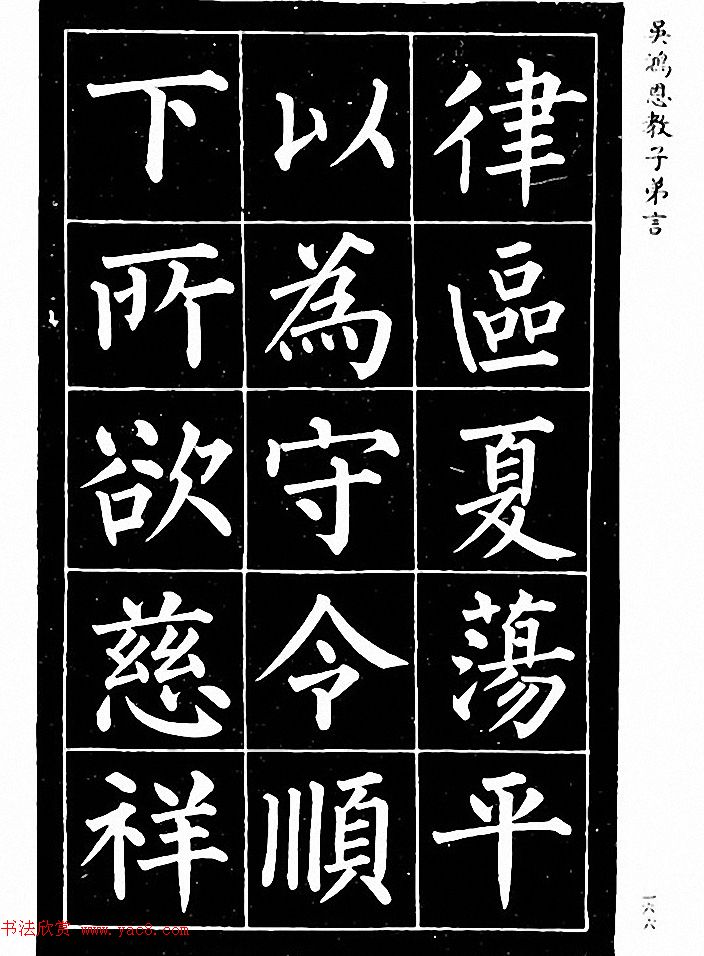 吳鴻恩教子弟言
律區夏蕩平
以為守令順
下所欲慈祥
一六六
书法欣赏 www.yac8.com